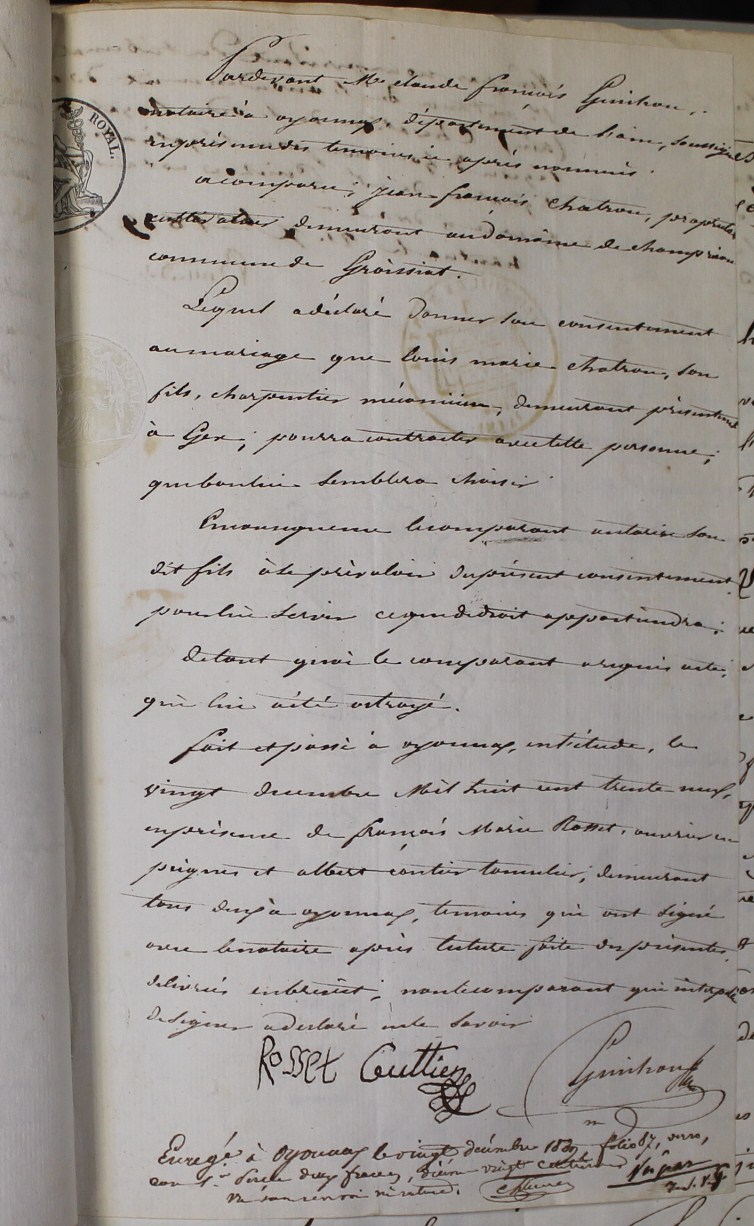 ROYAL.
Pardevant Me claude françois Guichon,
notaire à oyonnax, département de l'ain, soussigné
en présence des temoins ci après nommés
a comparu; jean françois Chatron, propriétaire
cultivateur demeurant au domaine de
commune de Groissiat.
Lequel a déclaré donner son consentement
au mariage que louis marie chatron, son
fils, charpentier mécanicien, demeurant présentement
à Gex; pourra contracter avec telle personne;
que bon lui semblera choisir
En conséquence le comparant autorise son
dit fils à se prévaloir du présent consentement
pour lui servir ce que de droit appartiendra;
de tout quoi le comparant a requis acte,
qui lui a été octroyé.
fait et passé à oyonnax, en l'étude, le
vingt decembre Mil huit cent trente neuf,
en présence de françois Marie Rosset, ouvrier en
peignes et albert tonnelier, demeurant
tous deux à oyonnax, temoins qui ont signé
avec le notaire après lecture faite des présentes
délivrées en brevet; non le comparant qui interpellé
de signer a declaré ne le savoir
Rosset Guichon
Enregé à Oyonnax le vingt decembre 1839 folio 87, verso,
Reçu deux francs, dixième vingt centimes